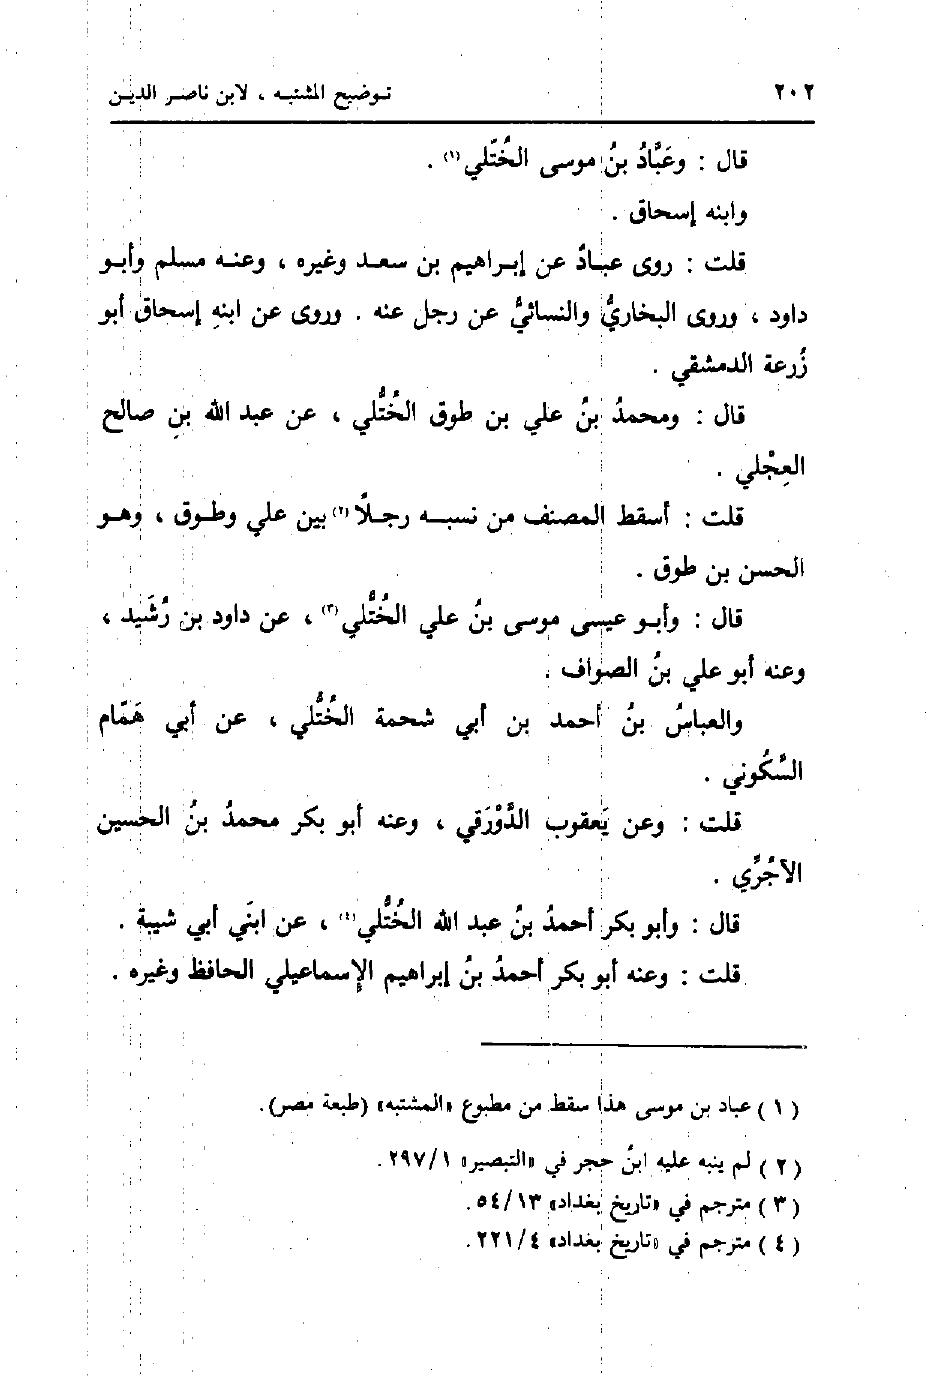 ٢٠٢ توضيح المشتبه ، لابن ناصر الدين
قال : وعَبَّادُ بنُ موسى الخُتَّلي(١) .
وابنه إسحاق .
قلت : روى عبادٌ عن إبراهيم بن سعد وغيره ، وعنه مسلم وأبو
داود ، وروى البخاريُّ والنسائيُّ عن رجل عنه . وروى عن ابنهِ إسحاق أبو
زُرعة الدمشقي .
قال : ومحمدُ بنُ علي بن طوق الخُتُّلي ، عن عبد الله بنِ صالح
العِجْلي .
قلت : أسقط المصنف من نسبه رجلًا(٢) بين علي وطوق ، وهو
الحسن بن طوق .
قال : وأبو عيسى موسى بنُ علي الخُتُّلي(٣) ، عن داود بن رُشَيد ،
وعنه أبو علي بنُ الصواف .
والعباسُ بنُ أحمد بن أبي شحمة الخُتُّلي ، عن أبي هَمّام
السَّكُوني .
قلت : وعن يَعقوب الدَّوْرَقي ، وعنه أبو بكر محمدُ بنُ الحسين
الآجُرِّي .
قال : وأبو بكر أحمدُ بنُ عبد الله الخُتُّلي(٤) ، عن ابنَي أبي شيبة .
قلت : وعنه أبو بكر أحمدُ بنُ إبراهيم الإسماعيلي الحافظ وغيره .
(١) عباد بن موسى هذا سقط من مطبوع «المشتبه» (طبعة مصر).
(٢) لم ينبه عليه ابنُ حجر في «التبصير» ٢٩٧/١.
(٣) مترجم في «تاريخ بغداد» ٥٤/١٣.
(٤) مترجم في «تاريخ بغداد» ٢٢١/٤.